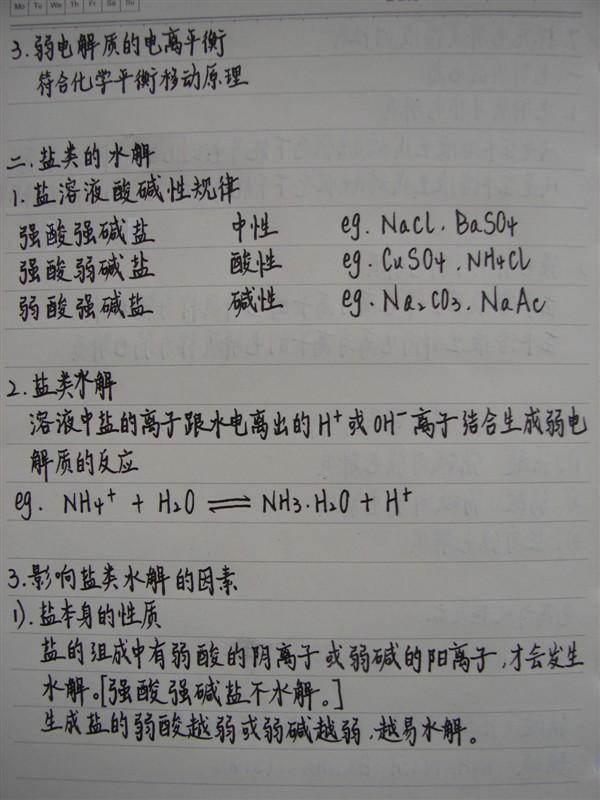 Mo Tu We Th Fr Sa Su
3.弱电解质的电离平衡
符合化学平衡移动原理
二.盐类的水解
1.盐溶液酸碱性规律
强酸强碱盐 中性 eg. NaCl. BaSO4
强酸弱碱盐 酸性 eg. CuSO4. NH4Cl
弱酸强碱盐 碱性 eg. Na2CO3. NaAc
2.盐类水解
溶液中盐的离子跟水电离出的H⁺或OH⁻离子结合生成弱电
解质的反应
eg. NH4⁺ + H2O ⇌ NH3·H2O + H⁺
3.影响盐类水解的因素
1).盐本身的性质
盐的组成中有弱酸的阴离子或弱碱的阳离子,才会发生
水解。[强酸强碱盐不水解。]
生成盐的弱酸越弱或弱碱越弱,越易水解。